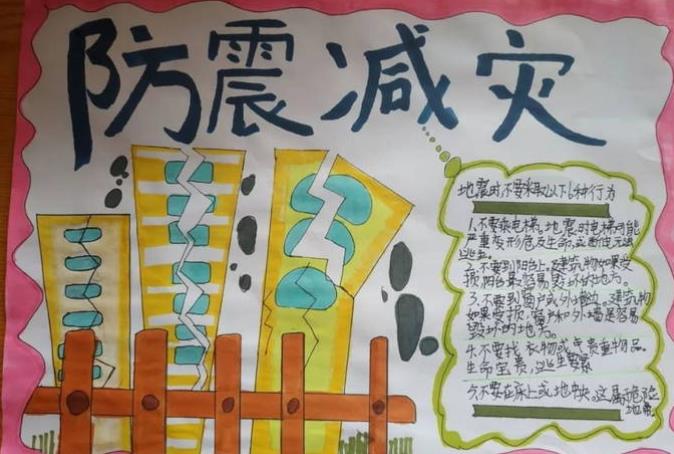 防震减灾
地震时不要采取以下6种行为
1.不要乘电梯。地震时电梯可能
严重变形危及生命,或断电无法
逃生。
2.不要到阳台上,建筑物如果受
损阳台最容易毁坏的地方。
3.不要到窗户或外墙边。建筑物
如果受损,窗户和外墙是容易
毁坏的地方。
4.不要找衣物或贵重物品。
生命宝贵,逃生要紧
5.不要在床上或地中央。这属危险
地带。